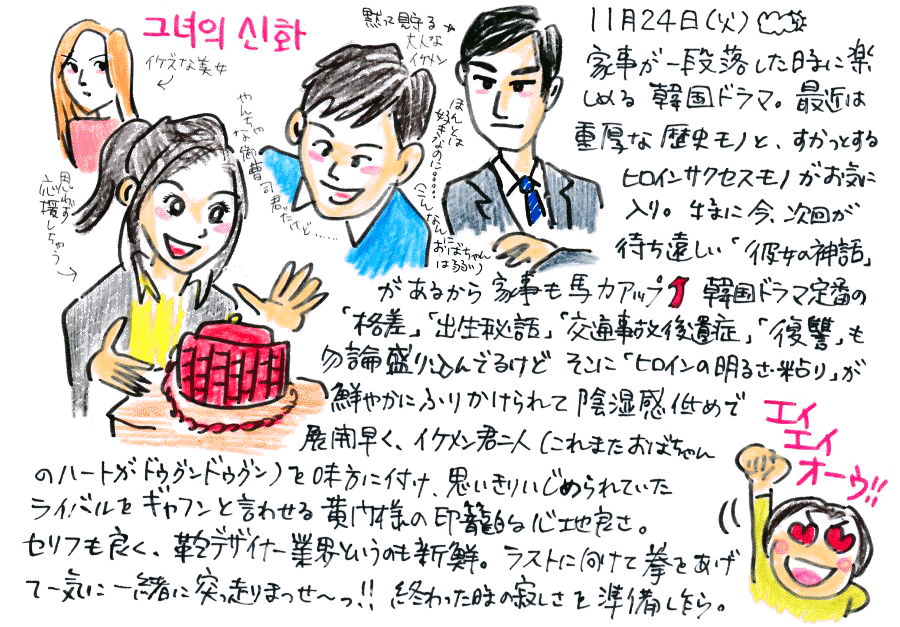 그녀의 신화
イケズな美女
黙って見守る
大人な
イケメン
やんちゃ
な
御曹司君だけど……
ほんとは
好きなのに……
おばちゃん
は弱い)
思わず
応援しちゃう
11月24日(火)
家事が一段落した時に楽
しめる 韓国ドラマ。最近は
重厚な歴史モノと、すかっとする
ヒロインサクセスモノがお気に
入り。特に今、次回が
待ち遠しい「彼女の神話」
があるから家事も馬力アップ 韓国ドラマ定番の
「格差」「出生秘話」「交通事故後遺症」「復讐」も
勿論盛り込んでるけど そこに「ヒロインの明るさ・粘り」が
鮮やかにふりかけられて陰湿感低めで
展開早く、イケメン君二人(これまたおばちゃん
のハートがドゥグンドゥグン)を味方に付け、思いきりいじめられていた
ライバルをギャフンと言わせる黄門様の印籠的な心地良さ。
セリフも良く、鞄デザイナー業界というのも新鮮。ラストに向けて拳をあげ
て一気に一緒に突っ走りまっせ〜っ!! 終わった時の寂しさを準備しながら。
エイ
エイ
オーウ!!